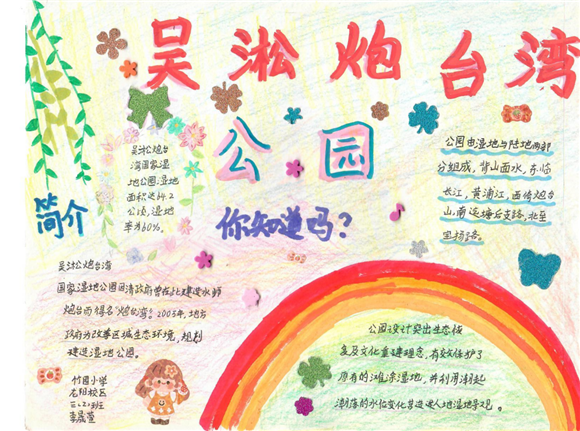 吴淞炮台湾
公园
你知道吗?
简介
吴淞炮台
湾国家湿
地公园,湿地
面积达64.2
公顷,湿地
率为60%。
公园由湿地与陆地两部
分组成,背山面水,东临
长江,黄浦江,西倚炮台
山,南迄塘后支路,北至
宝杨路。
吴淞炮台湾
国家湿地公园因清政府曾在此建造水师
炮台而得名“炮台湾”。2005年,地方
政府为改善区域生态环境,规划
建造湿地公园。
公园设计突出生态恢
复及文化重建理念,有效保护了
原有的滩涂湿地,并利用潮起
潮落的水位变化营造
竹园小学
校区